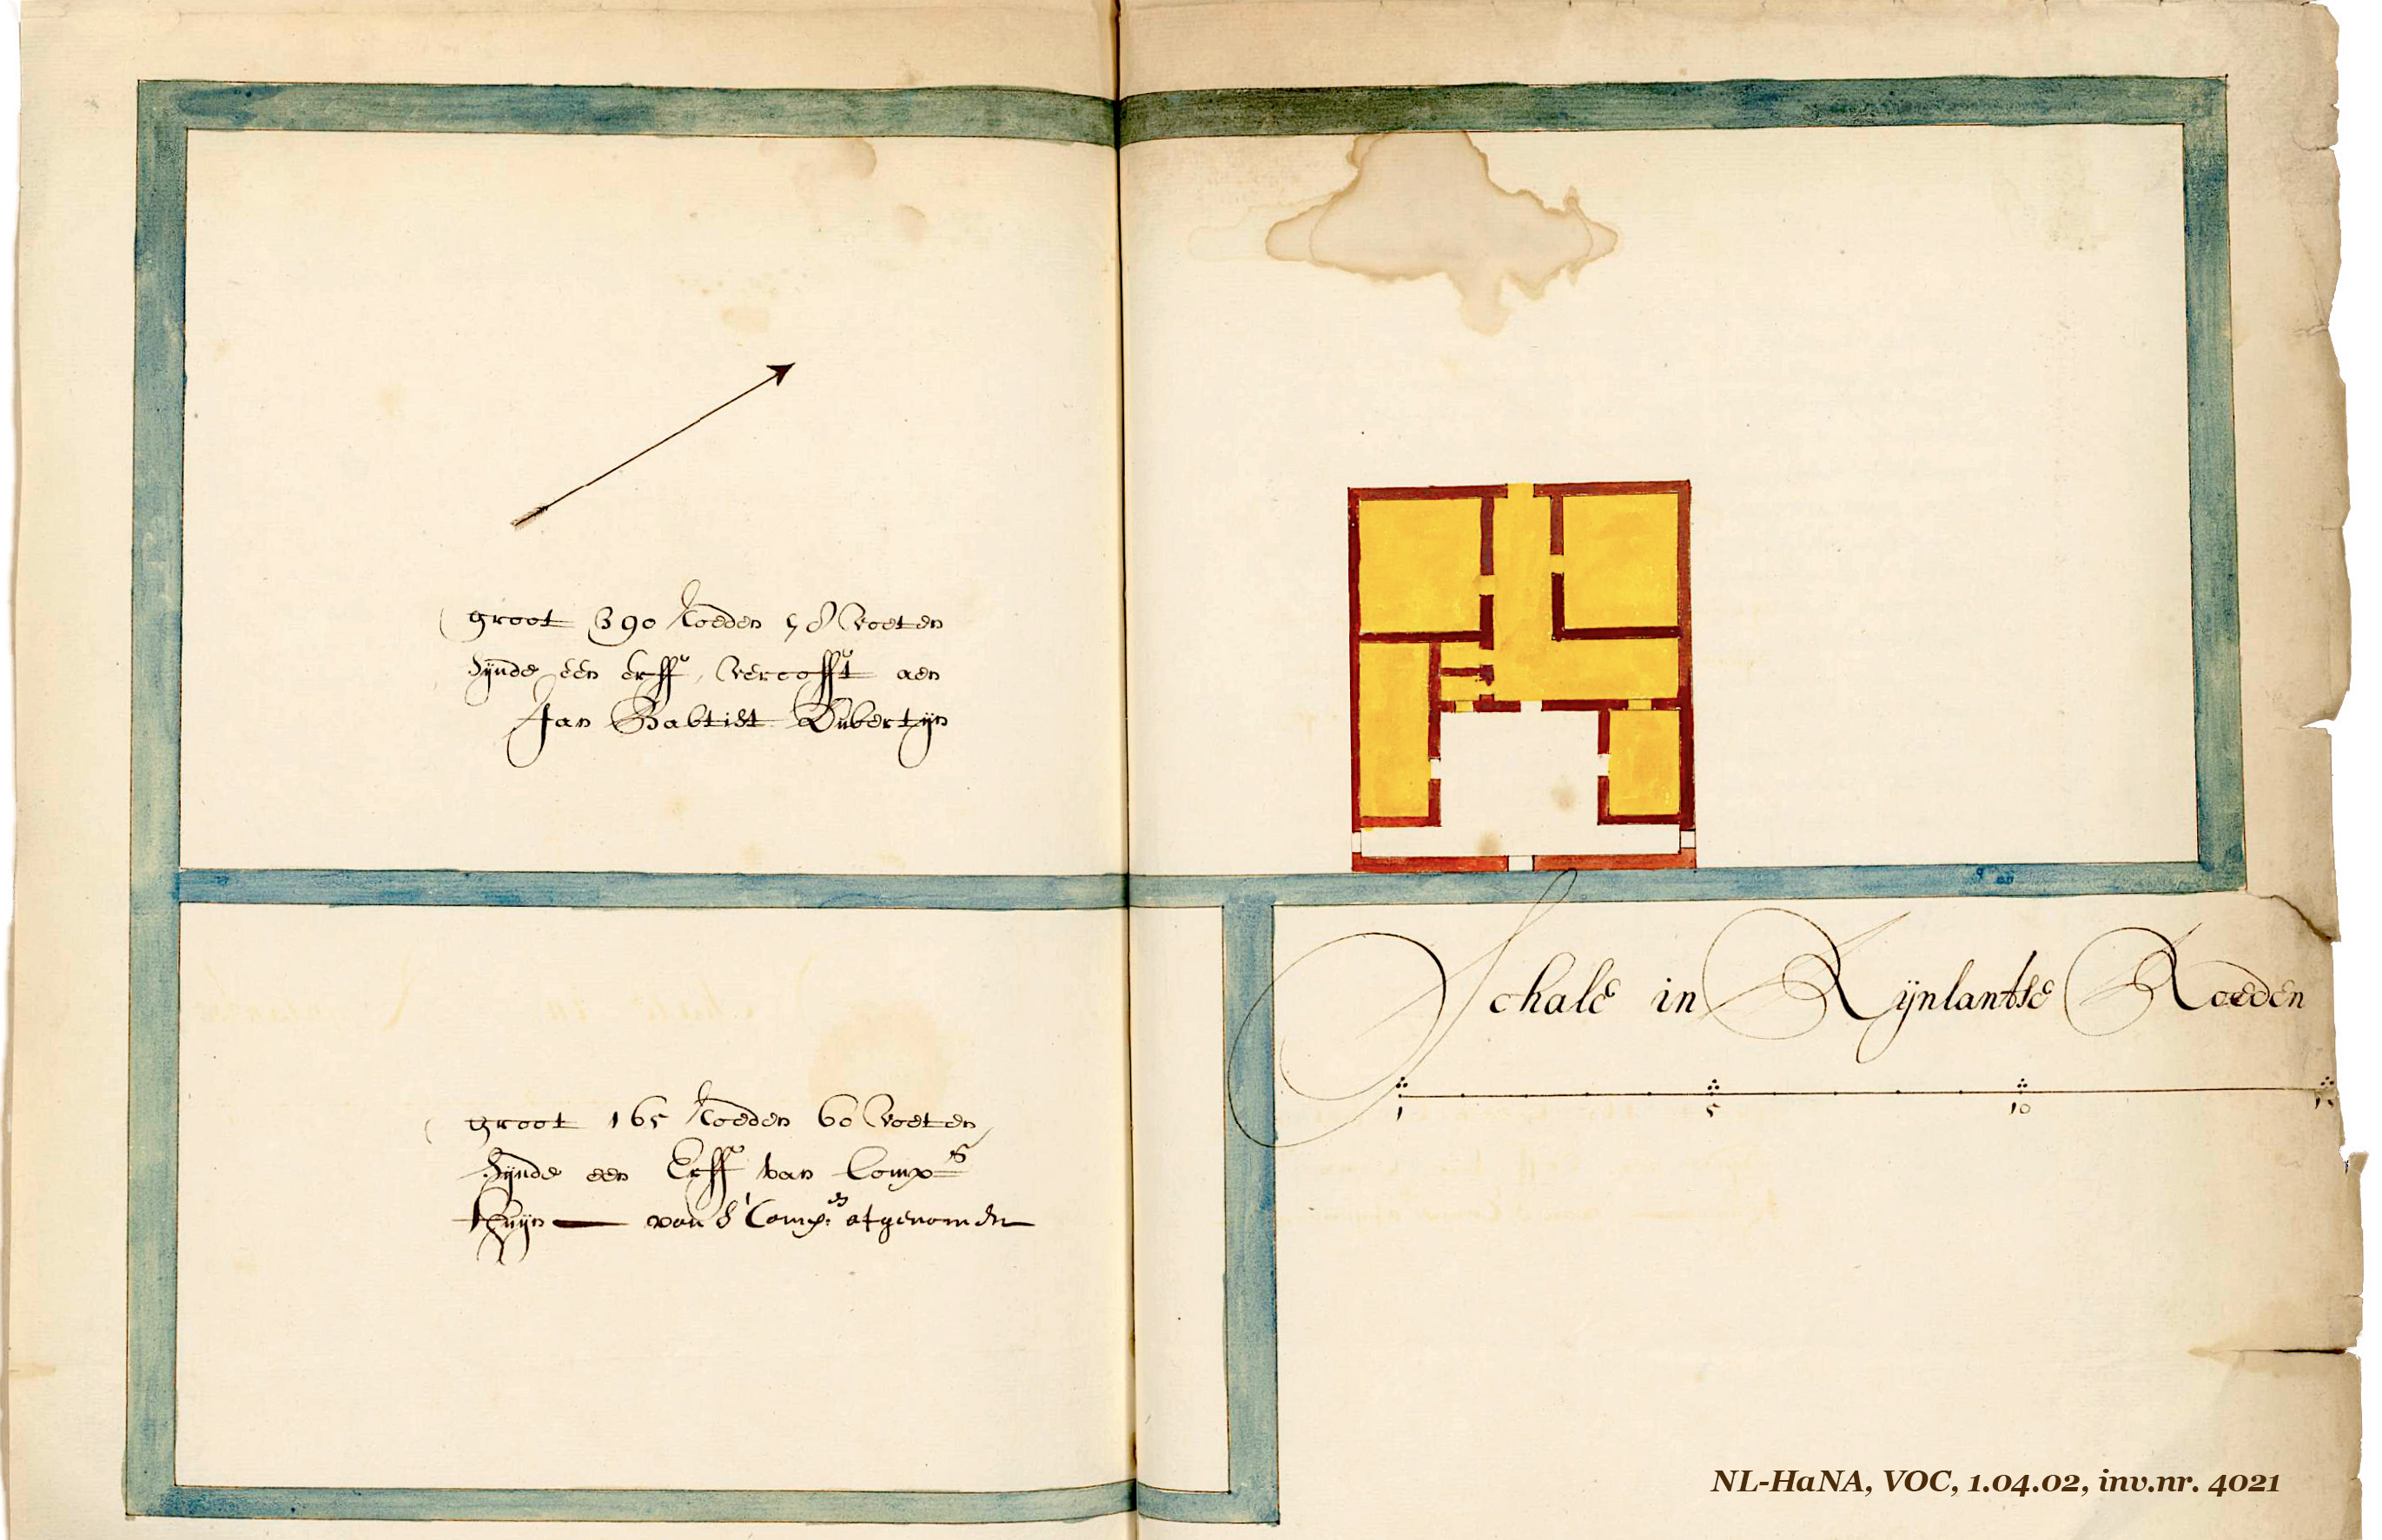 groot 390 Roeden 58 Voeten
Zijnde een erff, vercofft aen
Jan Babtist Dubertijn
groot 165 Roeden 60 Voeten
Zijnde een Erff van Comp.s
Thuijn — van d'Comp: afgenomen
Schale in Rijnlantse Roeden
1 5 10 15
NL-HaNA, VOC, 1.04.02, inv.nr. 4021